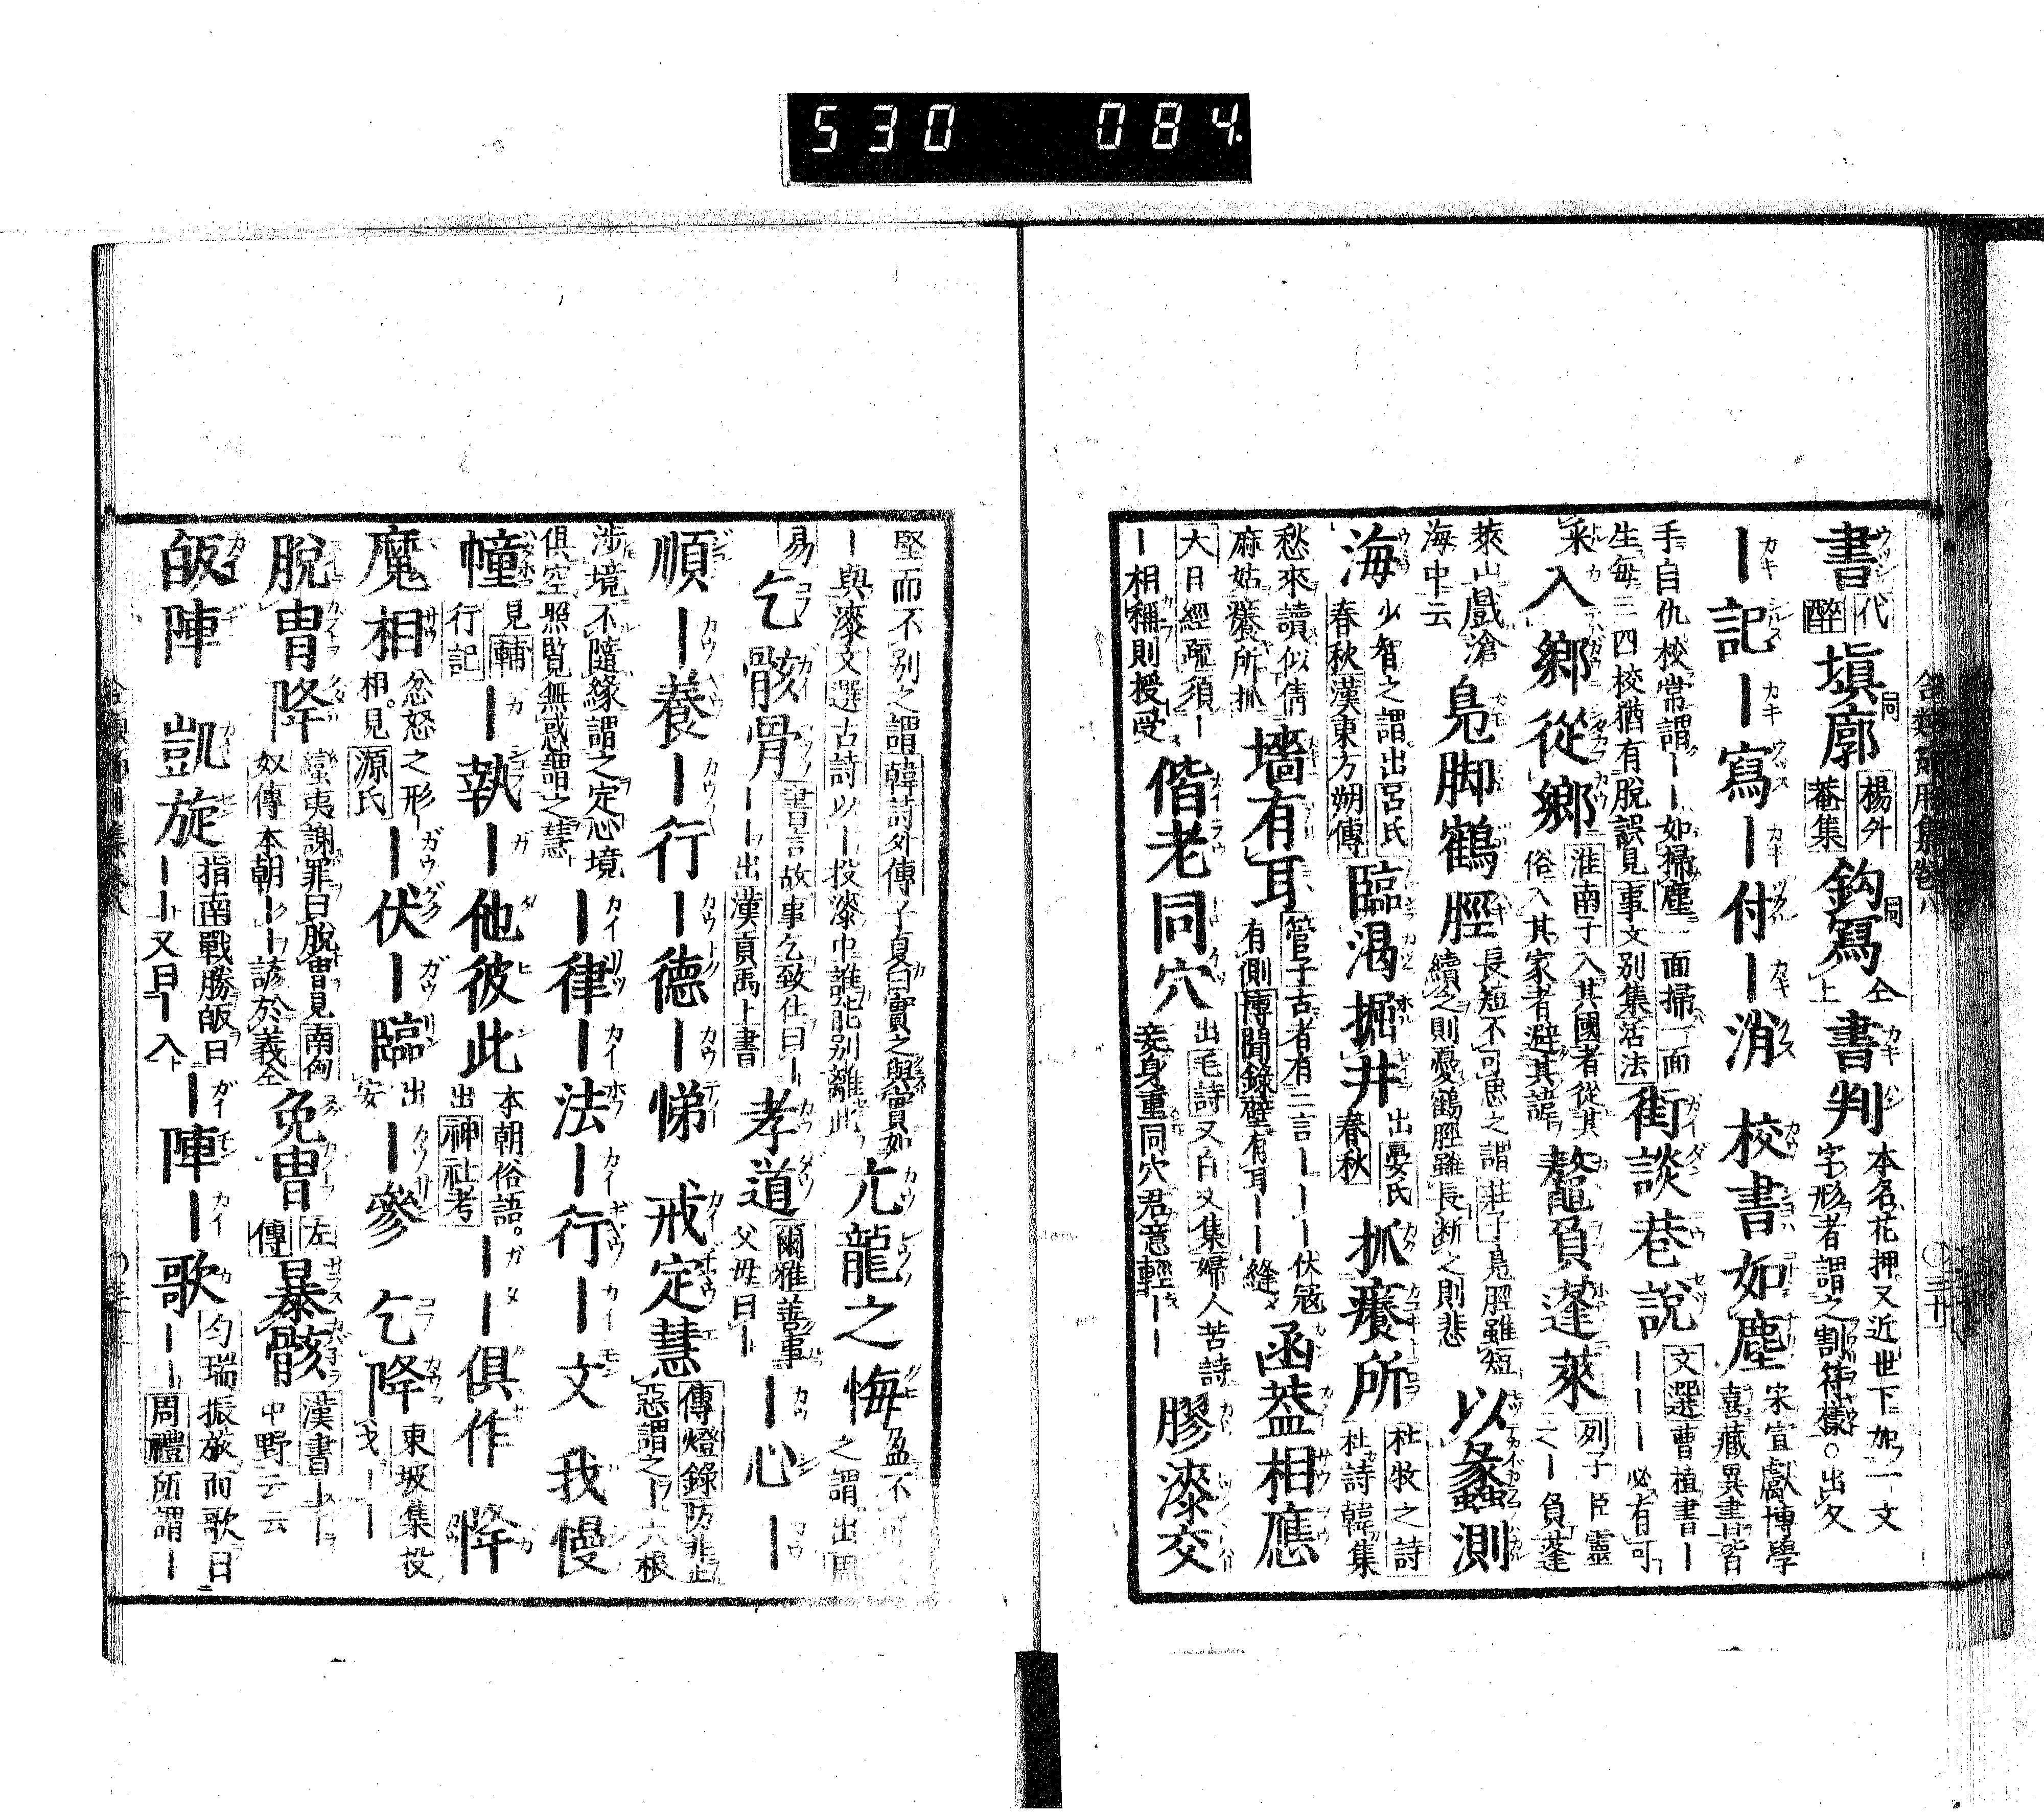 530 084
書 代醉 塡廓 同 楊外菴集 鈎寫 同 仝上 書判 本名花押又近世下加一文字形者謂之割符樣○出文
ー記 ー寫 ー付 ー消 校書如塵 宋宣獻博學喜藏異書皆
手自仇校常謂ー如掃塵一面掃一面生每三四校猶有脫誤見事文別集活法 街談巷說 ーーーー必有可 文選曹植書ー
采 入鄉從鄉 淮南子入其國者從其俗入其家者避其諱 鼇負蓬萊 列子臣靈之ー負蓬
萊山戲滄海中云 鳧脚鶴脛 長短不可思之謂莊子鳧脛雖短續之則憂鶴脛雖長断之則悲 以蠡測
海 少智之謂出呂氏春秋漢東方朔傳 臨渴掘井 出晏氏春秋 抓癢所 杜牧之詩杜詩韓集
愁來讀似倩麻姑癢所抓 墻有耳 管子古者有二言ーーー伏寇有側博聞錄壁有耳ーー縫 函葢相應
大日經疏須ーー相稱則授受 偕老同穴 出毛詩又白文集婦人苦詩妾身重同穴君意輕ーー 膠漆交
堅而不別之謂韓詩外傳子夏曰實之與實如ー與漆文選古詩以ー投漆中誰能別離此 亢龍之悔 盈不之謂出周
易 乞骸骨 書言故事乞致仕曰ーーー出漢貢禹上書 孝道 爾雅善事父母曰ー ー心 ー
順 ー養 ー行 ー德 ー悌 戒定慧 傳燈錄防非止惡謂之ー六根
涉境不隨緣謂之定心境俱空照覧無惑謂之慧 ー律 ー法 ー行 ー文 我慢
幢 見輔行記 ー執 ー他彼此 本朝俗語。出神社考 ーー俱作 降
魔相 忿怒之形相。見源氏 ー伏 ー臨 出安 ー參 乞降 東坡集投戈ーー
脫冑降 蠻夷謝罪曰脫冑見南匈奴傳本朝ーー諺於義仝 免冑 左傳 暴骸 漢書ーー中野云云
皈陣 凱旋 指南戰勝皈曰ーー又曰ー入 ー陣 ー歌 勻瑞振旅而歌曰ーー周禮所謂ー